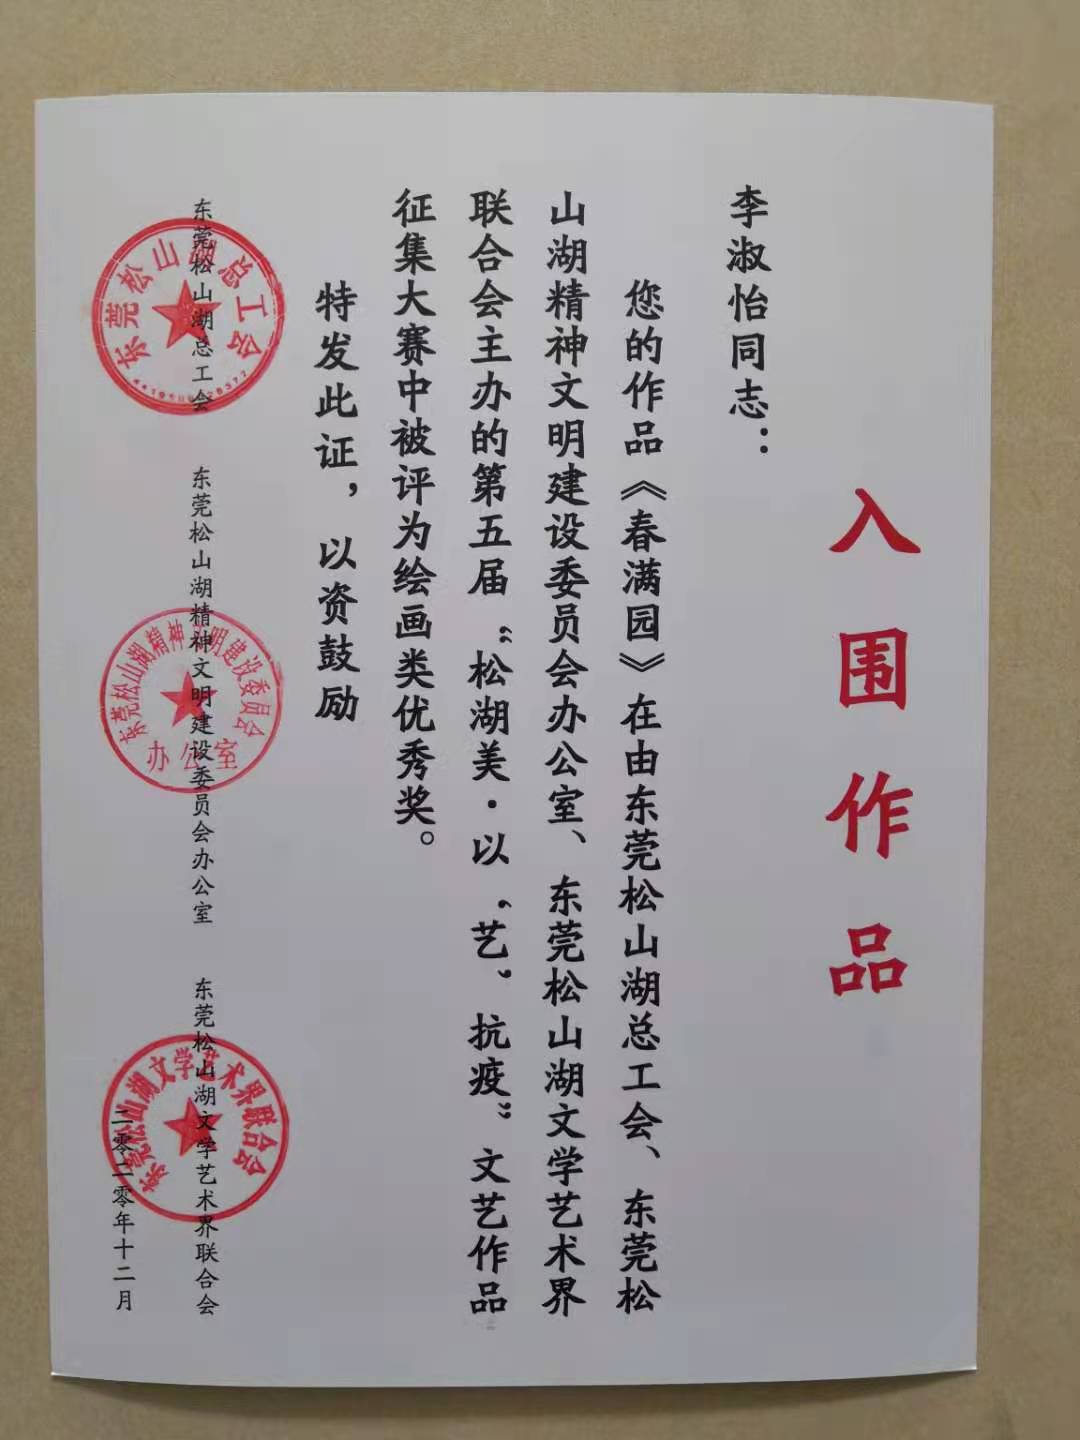 入围作品
李淑怡同志：
您的作品《春满园》在由东莞松山湖总工会、东莞松
山湖精神文明建设委员会办公室、东莞松山湖文学艺术界
联合会主办的第五届“松湖美·以‘艺’抗疫”文艺作品
征集大赛中被评为绘画类优秀奖。
特发此证，以资鼓励
东莞松山湖总工会
东莞松山湖精神文明建设委员会办公室
东莞松山湖文学艺术界联合会
二零二零年十二月
东莞松山湖总工会
东莞松山湖精神文明建设委员会
办公室
东莞松山湖文学艺术界联合会